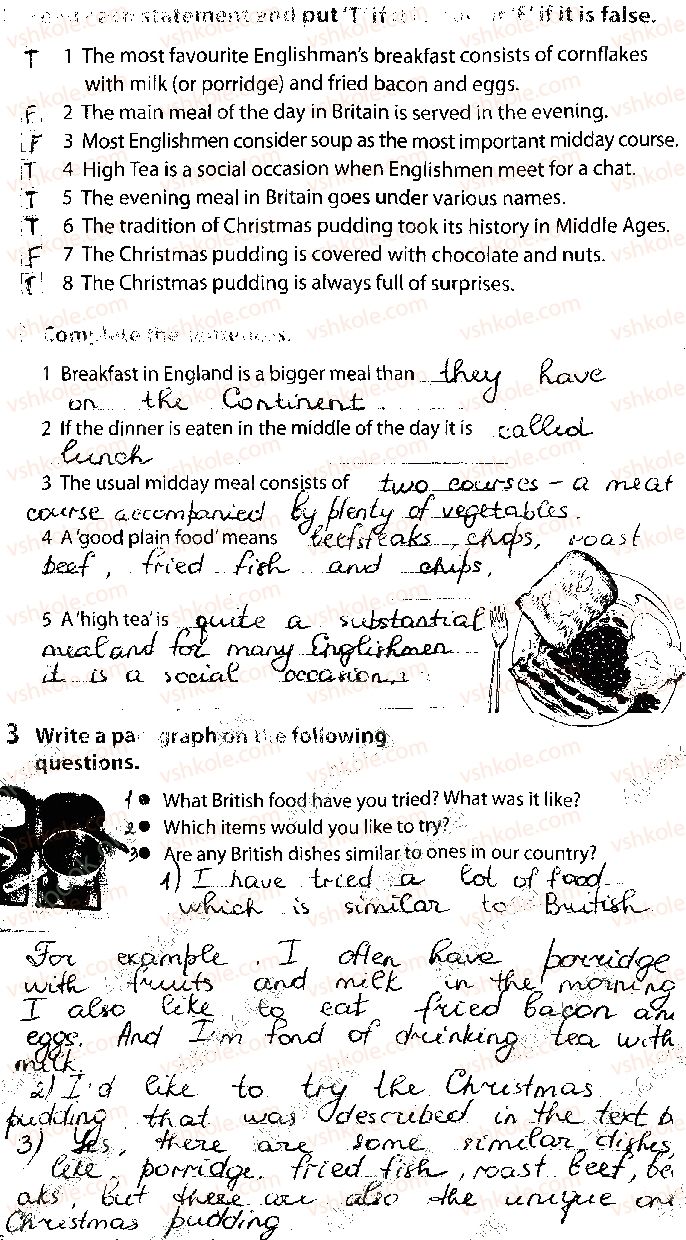 statement and put 'T' if if it is false.
T 1 The most favourite Englishman's breakfast consists of cornflakes
with milk (or porridge) and fried bacon and eggs.
F 2 The main meal of the day in Britain is served in the evening.
F 3 Most Englishmen consider soup as the most important midday course.
T 4 High Tea is a social occasion when Englishmen meet for a chat.
T 5 The evening meal in Britain goes under various names.
T 6 The tradition of Christmas pudding took its history in Middle Ages.
F 7 The Christmas pudding is covered with chocolate and nuts.
T 8 The Christmas pudding is always full of surprises.
Complete the sentences.
1 Breakfast in England is a bigger meal than they have
on the Continent.
2 If the dinner is eaten in the middle of the day it is called
lunch
3 The usual midday meal consists of two courses - a meat
course accompanied by plenty of vegetables.
4 A 'good plain food' means beefsteaks, chops, roast
beef, fried fish and chips.
5 A 'high tea' is quite a substantial
meal and for many Englishmen
it is a social occasion.
3 Write a paragraph on the following
questions.
1 • What British food have you tried? What was it like?
2 • Which items would you like to try?
3 • Are any British dishes similar to ones in our country?
1) I have tried a lot of food
which is similar to British
For example, I often have porridge
with fruits and milk in the morning
I also like to eat fried bacon an
eggs. And I'm fond of drinking tea with
milk.
2) I'd like to try the Christmas
pudding that was described in the text b
3) Yes, there are some similar dishes,
like porridge, fried fish, roast beef, be
aks, but there are also the unique one
Christmas pudding